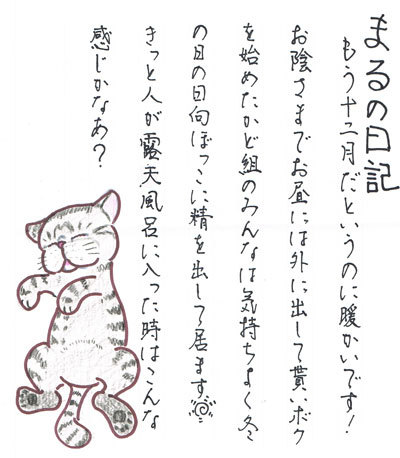 まるの日記
もう十二月だというのに暖かいです！
お陰さまでお昼には外に出して貰いボク
を始めたかど組のみんなは気持ちよく冬
の日の日向ぼっこに精を出して居ます
きっと人が露天風呂に入った時はこんな
感じかなあ？